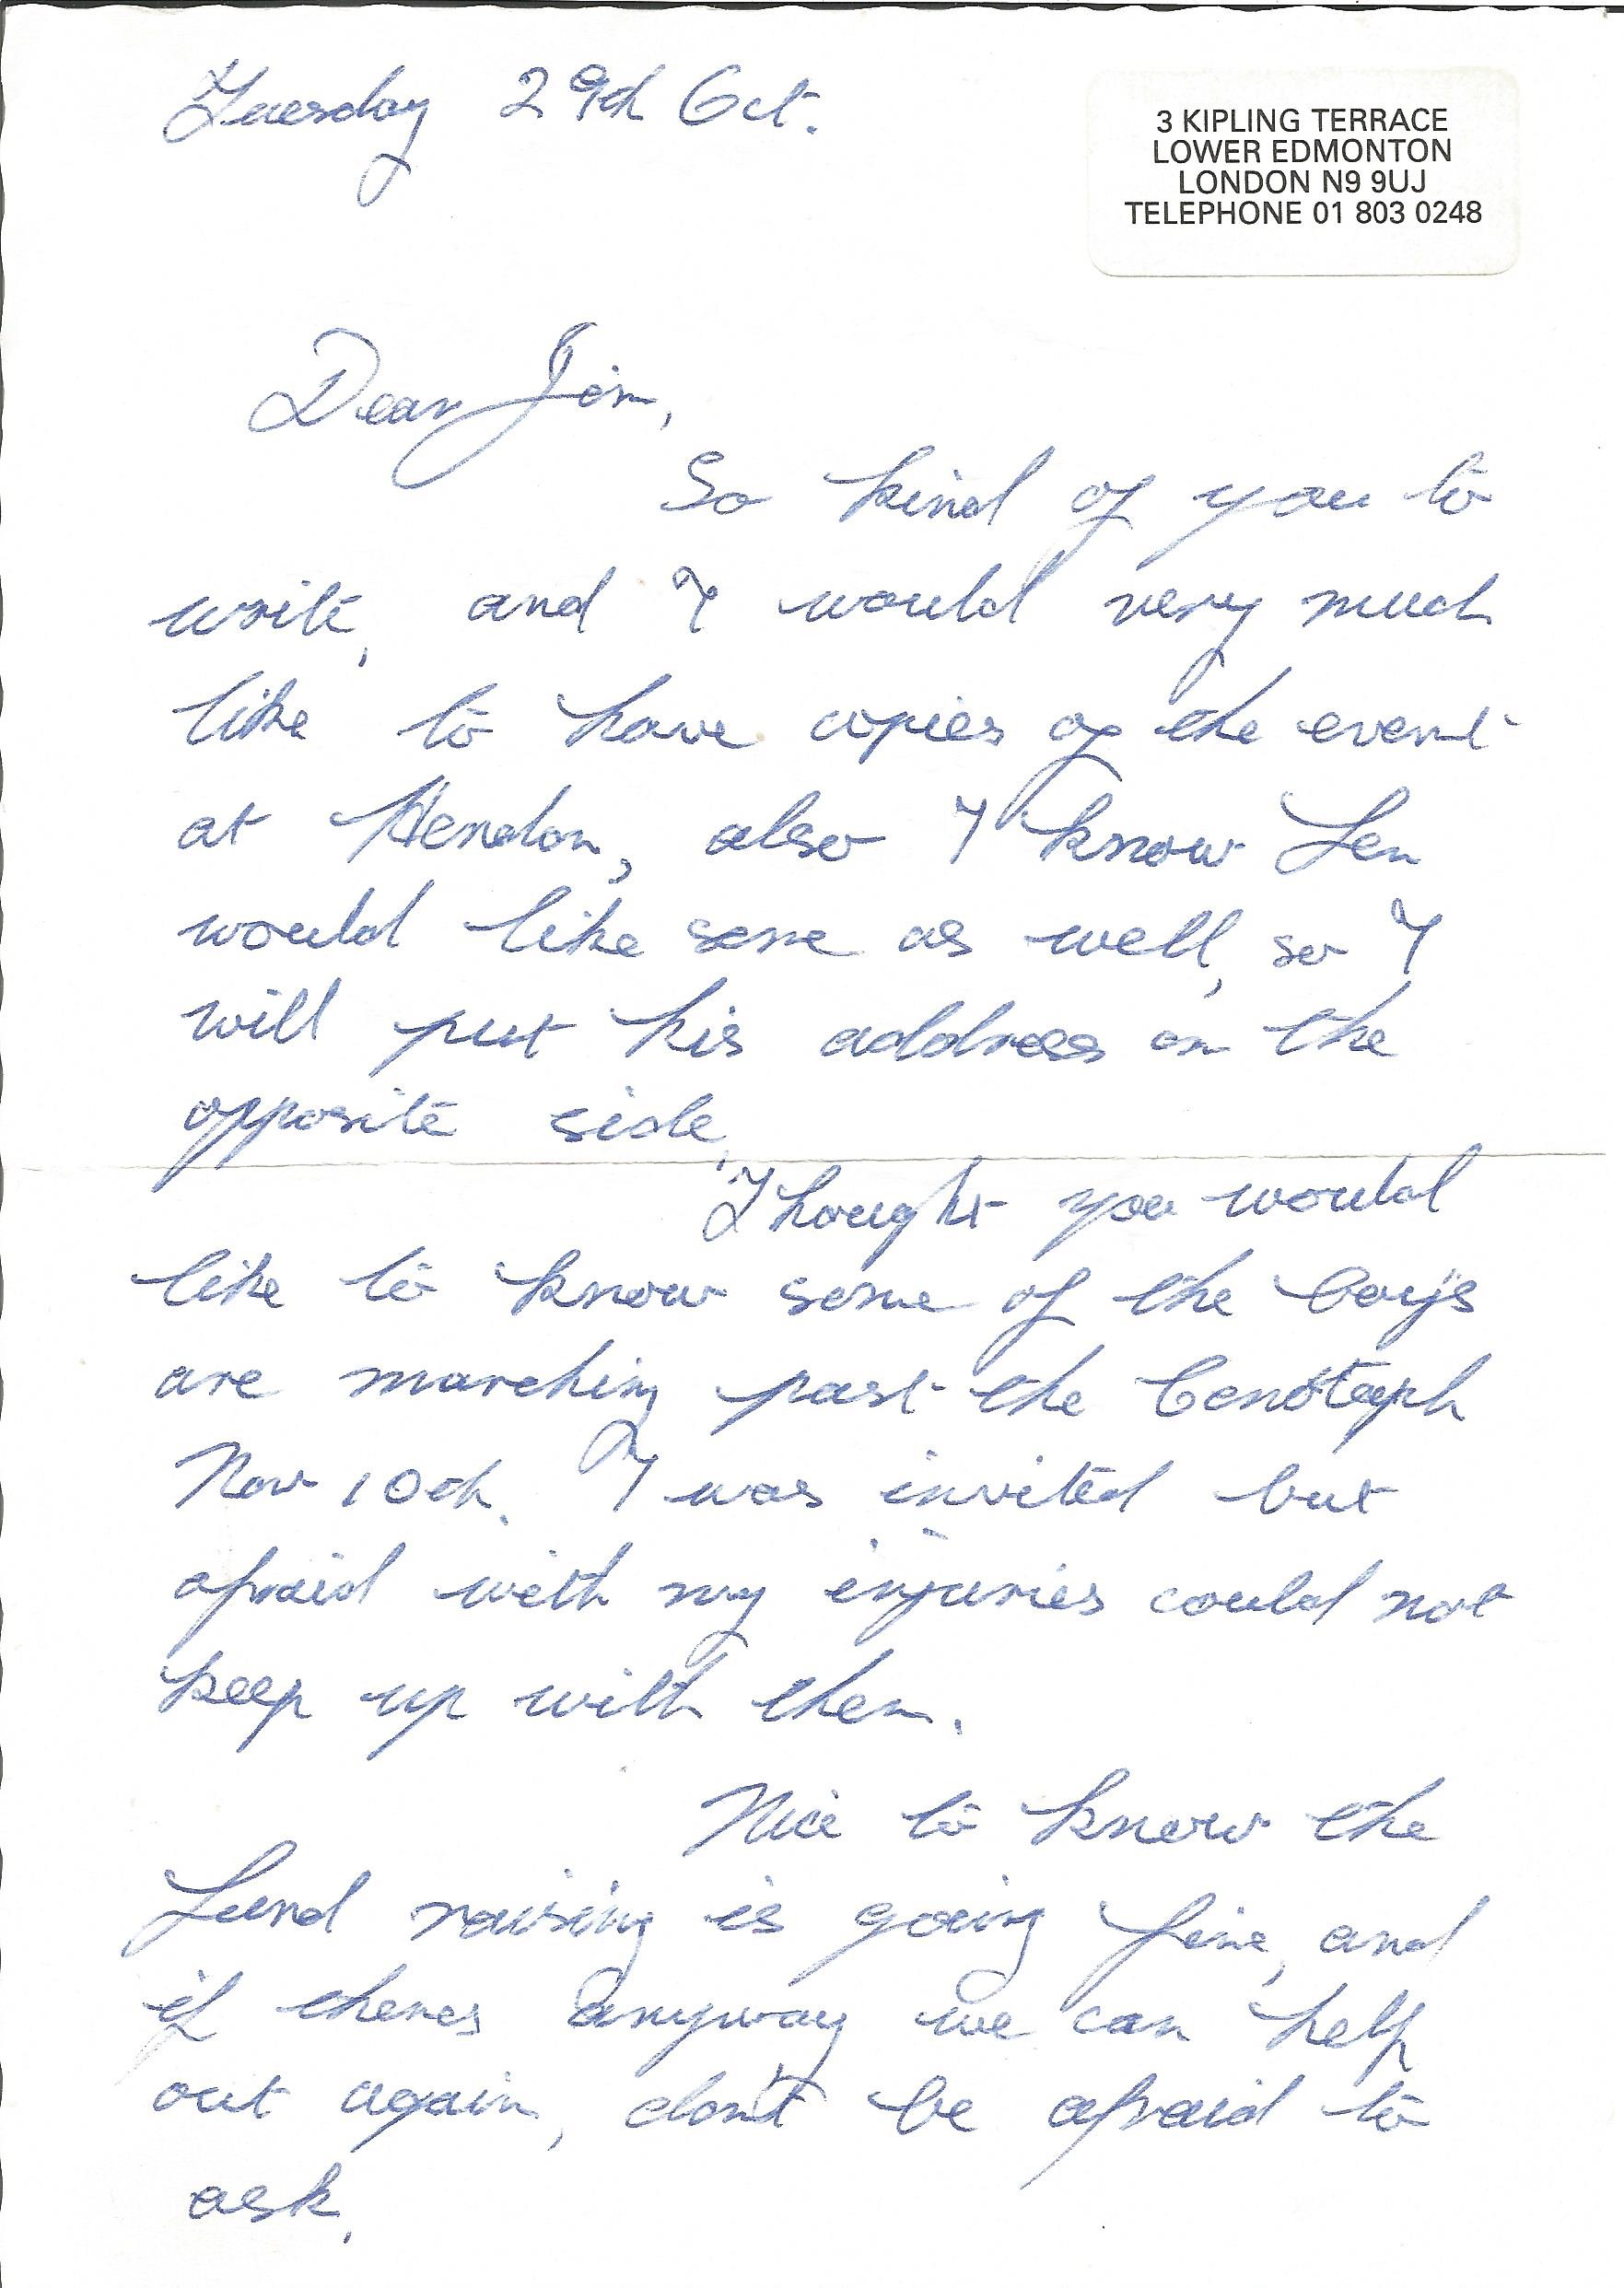 Tuesday 29th Oct.
3 KIPLING TERRACE
LOWER EDMONTON
LONDON N9 9UJ
TELEPHONE 01 803 0248
Dear Jim,
So kind of you to
write, and I would very much
like to have copies of the event
at Hendon, also I know Len
would like some as well, so I
will put his address on the
opposite side,
Thought you would
like to know some of the boys
are marching past the Cenotaph
Nov 10th. I was invited but
afraid with my injuries could not
keep up with them.
Nice to know the
Fund raising is going fine, and
if theres anyway we can help
out again, don't be afraid to
ask,